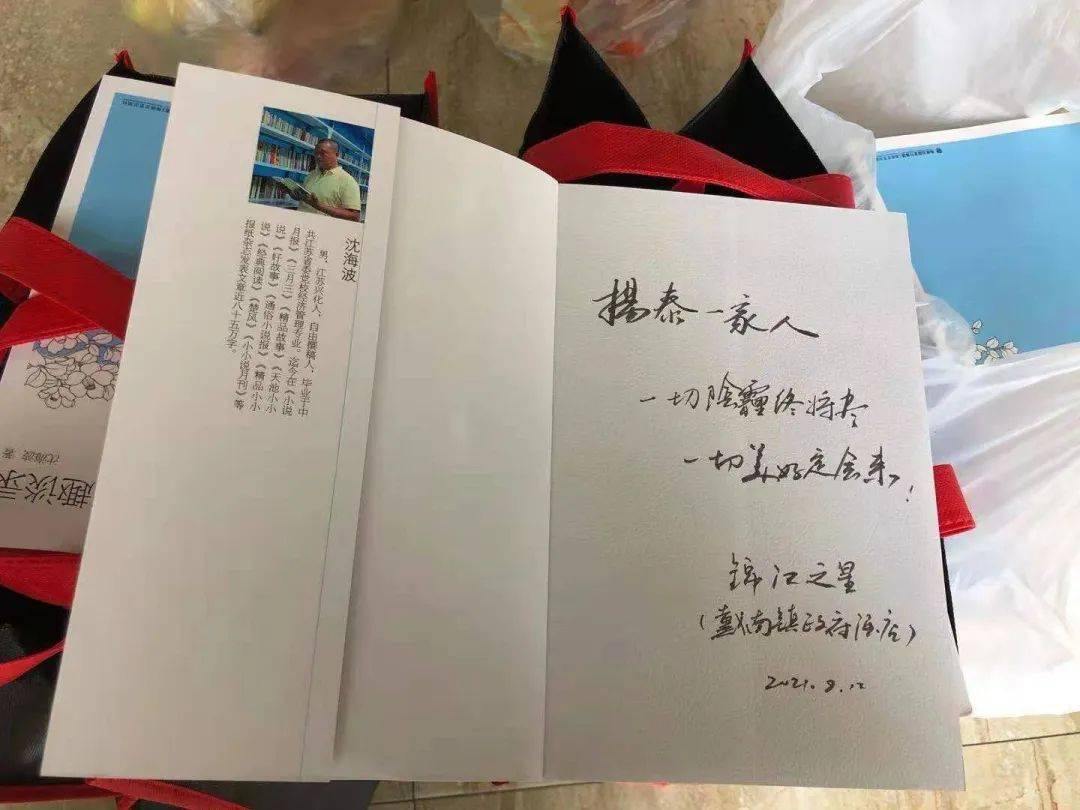 沈海波
男，江苏兴化人，自由撰稿人，毕业于中
共江苏省委党校经济管理专业。迄今在《小说
月报》《三月三》《精品故事》《天池小小
说》《好故事》《通俗小说报》《精品小小
说》《经典阅读》《楚风》《小小说月刊》等
报纸杂志发表文章近八十五万字。
揚泰一家人
一切阴霾终将尽
一切美好定会来！
锦江之星
（戴南镇政府酒店）
2021.8.12
趣谈录
沈海波 著